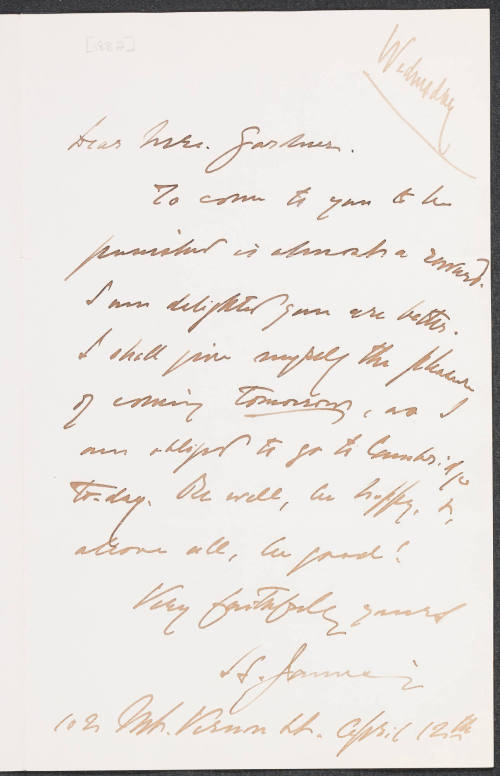 [1882]
Wednesday
Dear Mrs. Gardner.
To come to you to be
punished is almost a reward.
I am delighted you are better.
I shall give myself the pleasure
of coming tomorrow, as I
am obliged to go to Cambridge
to-day. Be well, be happy, &,
above all, be good!
Very faithfully yours
H. James jr
102 Mt. Vernon St. April 12th